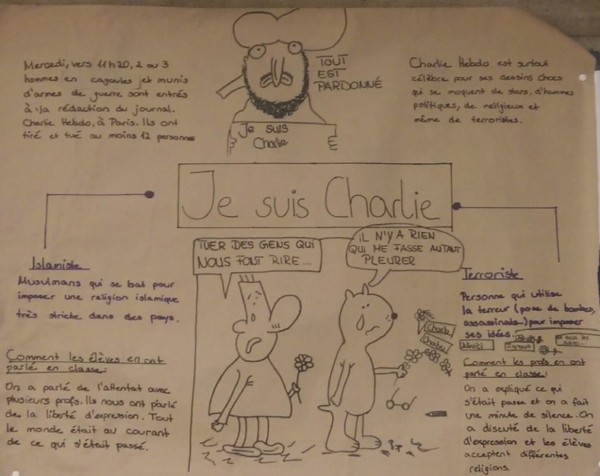 Mercredi, vers 11h20, 2 ou 3
hommes en cagoules et munis
d'armes de guerre sont entrés
à la rédaction du journal
Charlie Hebdo, à Paris. Ils ont
tiré et tué au moins 12 personnes
TOUT
EST
PARDONNÉ
Je suis
Charlie
Charlie Hebdo est surtout
célèbre pour ses dessins chocs
qui se moquent de stars, d'hommes
politiques, de religieux et
même de terroristes.
Je suis Charlie
Islamiste
Musulmans qui se bat pour
imposer une religion islamique
très stricte dans des pays.
Comment les élèves en ont
parlé en classe:
On a parlé de l'attentat avec
plusieurs profs. Ils nous ont parlé
de la liberté d'expression. Tout
le monde était au courant
de ce qui s'était passé.
TUER DES GENS QUI
NOUS FONT RIRE...
IL N'Y A RIEN
QUI ME FASSE AUTANT
PLEURER
Charb
Terroriste
Personne qui utilise
la terreur (pose de bombes,
assassinats...) pour imposer
ses idées.
Comment les profs en ont
parlé en classe:
On a expliqué ce qui
s'était passé et on a fait
une minute de silence. On
a discuté de la liberté
d'expression et les élèves
acceptent différentes
religions.